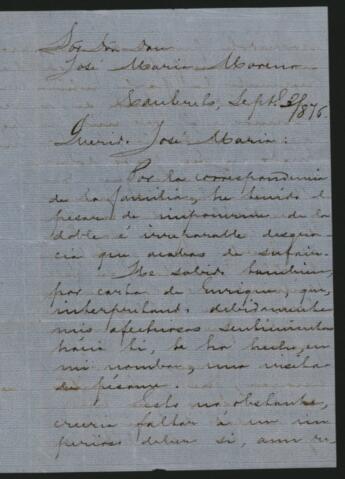 Sor. Don
José Maria Moreno
Sept. 3/876.
Querido José Maria:
Por la correspondencia
de la familia, he tenido el
pesar de imponerme de la
doble é irreparable desgra-
cia que acabas de sufrir.
He sabido tambien,
por carta de Enrique, que,
interpretando debidamente
mis afectuosos sentimientos
hácia ti, te ha hecho, en
mi nombre, una visita
de pésame.
Esto no obstante,
creeria faltar á un im
perioso deber si, aun re